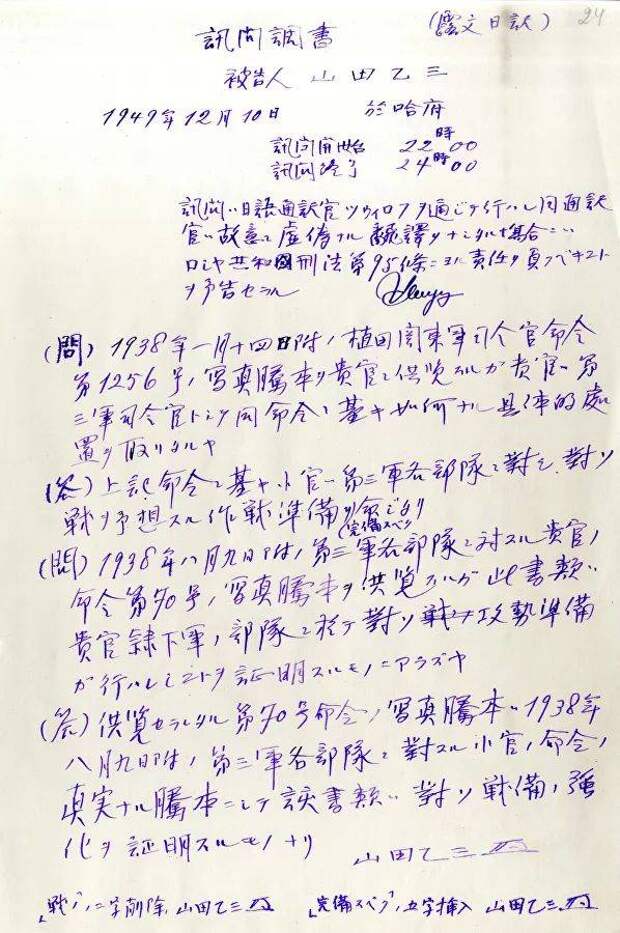 (露文日訳) 24
訊問調書
被告人 山田乙三
1949年12月10日 於哈府
訊問開始 22時00
訊問終了 24時00
訊問ハ日語通訳官ツウィロフヲ通ジテ行ハレ同通訳
官ハ故意ニ虚偽ナル飜譯ヲナシタル場合ニハ
ロシヤ共和國刑法第95條ニヨル責任ヲ負フベキコト
ヲ予告セラル
(問) 1938年一月十四日附ノ植田関東軍司令官命令
第1256号ノ写真謄本ヲ貴官ニ供覧スルガ貴官ハ第
三軍司令官トシテ同命令ニ基キ如何ナル具体的處
置ヲ取リタルヤ
(答) 上記命令ニ基キ小官ハ第三軍各部隊ニ對シ對ソ
戦ヲ予想スル作戦準備ヲ命ジタリ
(完備スベク)
(問) 1938年八月九日附ノ第三軍各部隊ニ対スル貴官ノ
命令第70号ノ写真謄本ヲ供覧スルガ此書類ハ
貴官隷下軍ノ部隊ニ於テ對ソ戦ノ攻勢準備
ガ行ハレシコトヲ証明スルモノニアラズヤ
(答) 供覧セラレタル第70号命令ノ写真謄本ハ1938年
八月九日附ノ第三軍各部隊ニ對スル小官ノ命令ノ
真実ナル謄本ニシテ該書類ハ對ソ戦備ノ強
化ヲ証明スルモノナリ
山田乙三
「戦ノ」ノ二字削除 山田乙三 「完備スベク」ノ五字挿入 山田乙三